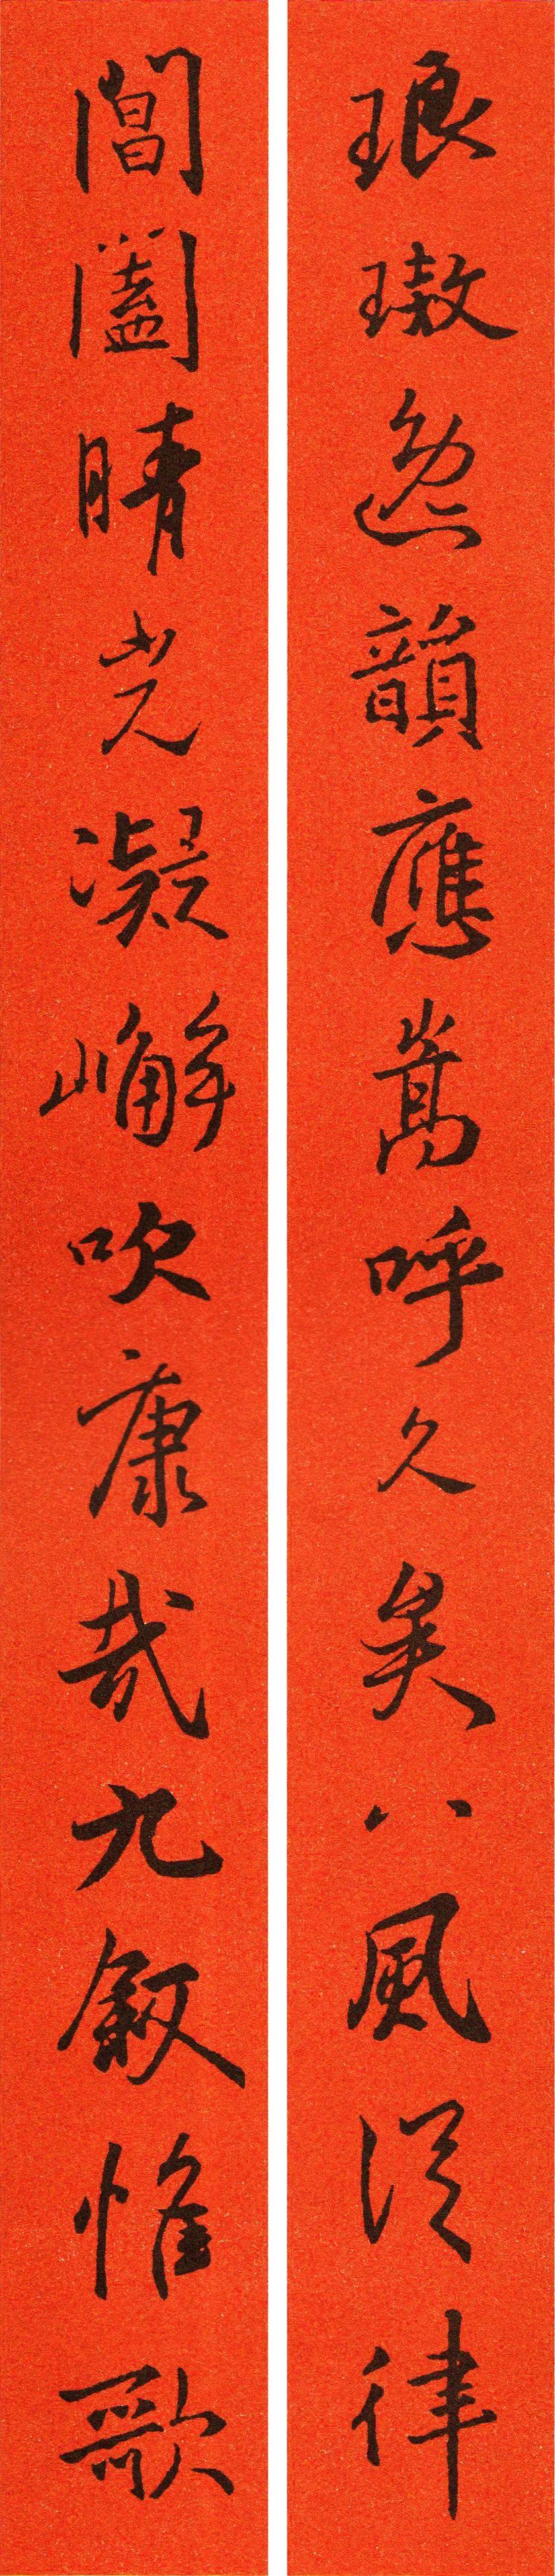 琅璈逸韻應嵩呼久矣八風從律
閶闔晴光凝嶰吹康哉九叙惟歌